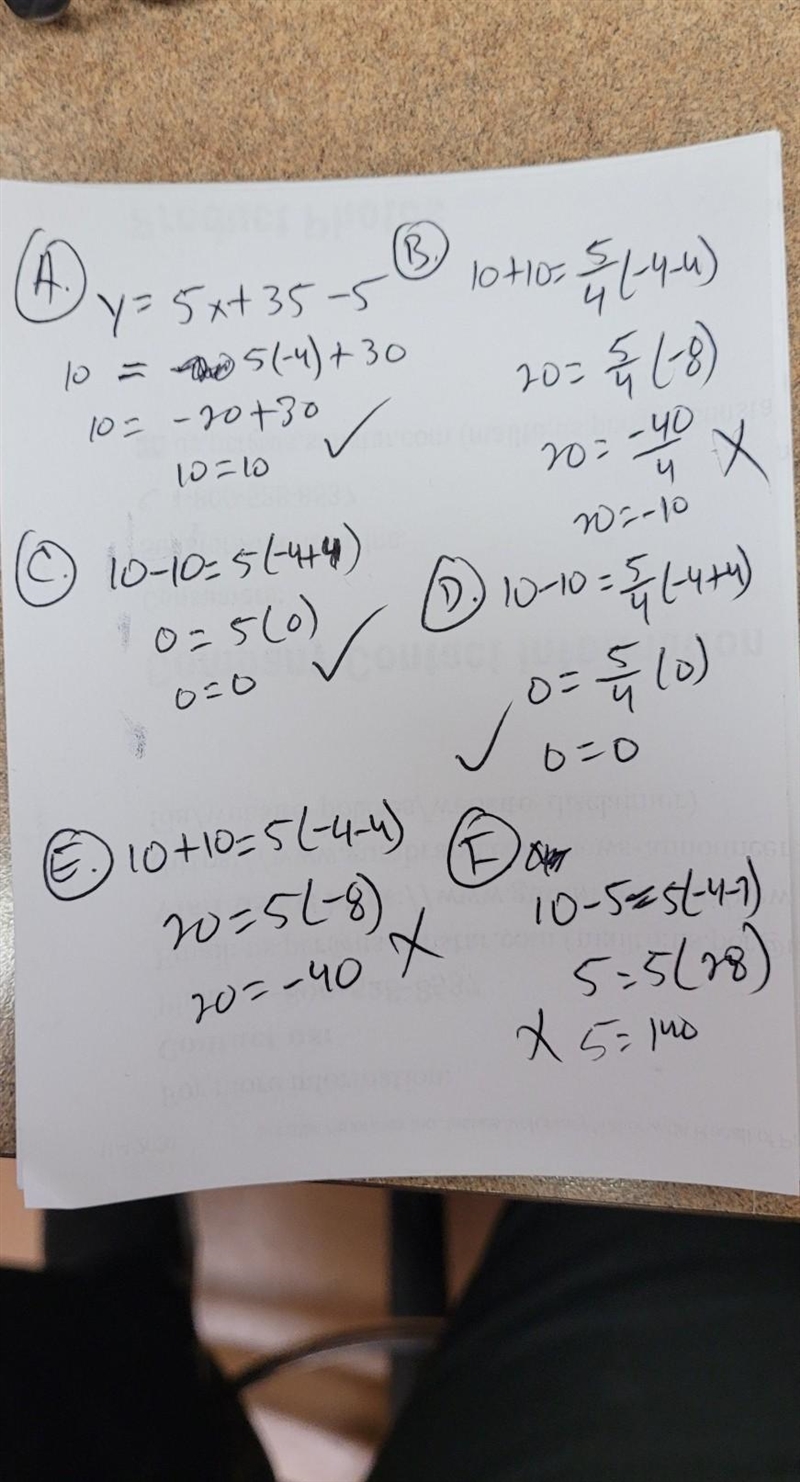 A.
y = 5x + 35 - 5
10 = 5(-4) + 30
10 = -20 + 30
10 = 10 ✓
B.
10 + 10 = 5/4 (-4-4)
20 = 5/4 (-8)
20 = -40/4 X
20 = -10
C. 10 - 10 = 5(-4+4)
0 = 5(0)
0 = 0 ✓
D. 10 - 10 = 5/4 (-4+4)
0 = 5/4 (0)
✓ 0 = 0
E. 10 + 10 = 5(-4-4)
20 = 5(-8)
20 = -40 X
F
10 - 5 = 5(-4-7)
5 = 5(28)
X 5 = 140